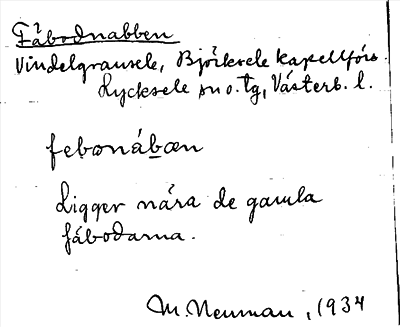 Fäbodnabben
Vindelgransele, Björksele kapellförs.
Lycksele sn o. tg, Västerb. l.
febonábæn
Ligger nära de gamla
fäbodarna.
M. Neuman, 1934